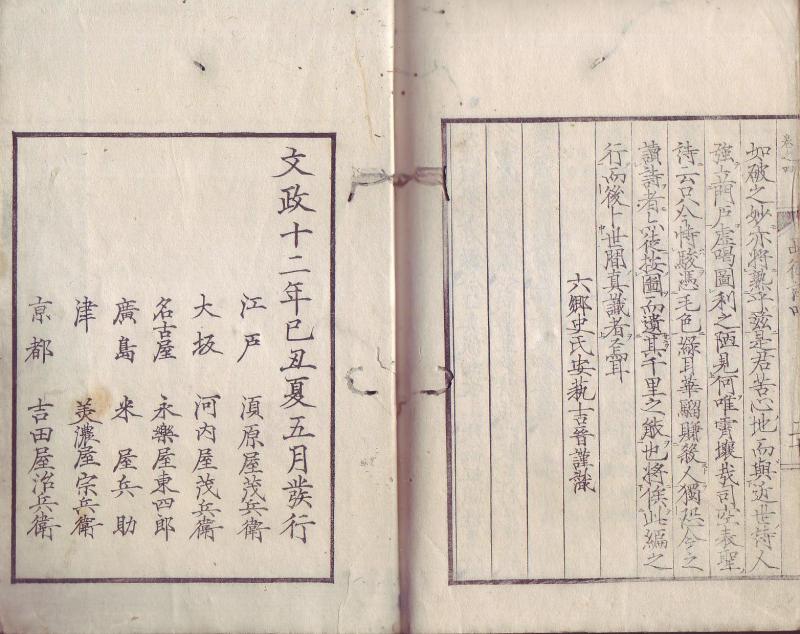 如破之妙亦將無乎茲是君苦心地而與近世詩人
強立門戶虛喝圖利之陋見何唯雲壤哉司空表聖
詩云只今恃駿憑毛色綠耳華騮賺殺人獨恐今之
讀詩者以徒按圖而遺其千里之能也將俟此編之
行而後卜世間真識者焉耳
六鄉史氏安藝吉晉謹識
文政十二年己丑夏五月發行
江戸 須原屋茂兵衛
大坂 河内屋茂兵衛
名古屋 永樂屋東四郎
廣島 米屋兵助
津 美濃屋宗兵衛
京都 吉田屋治兵衛